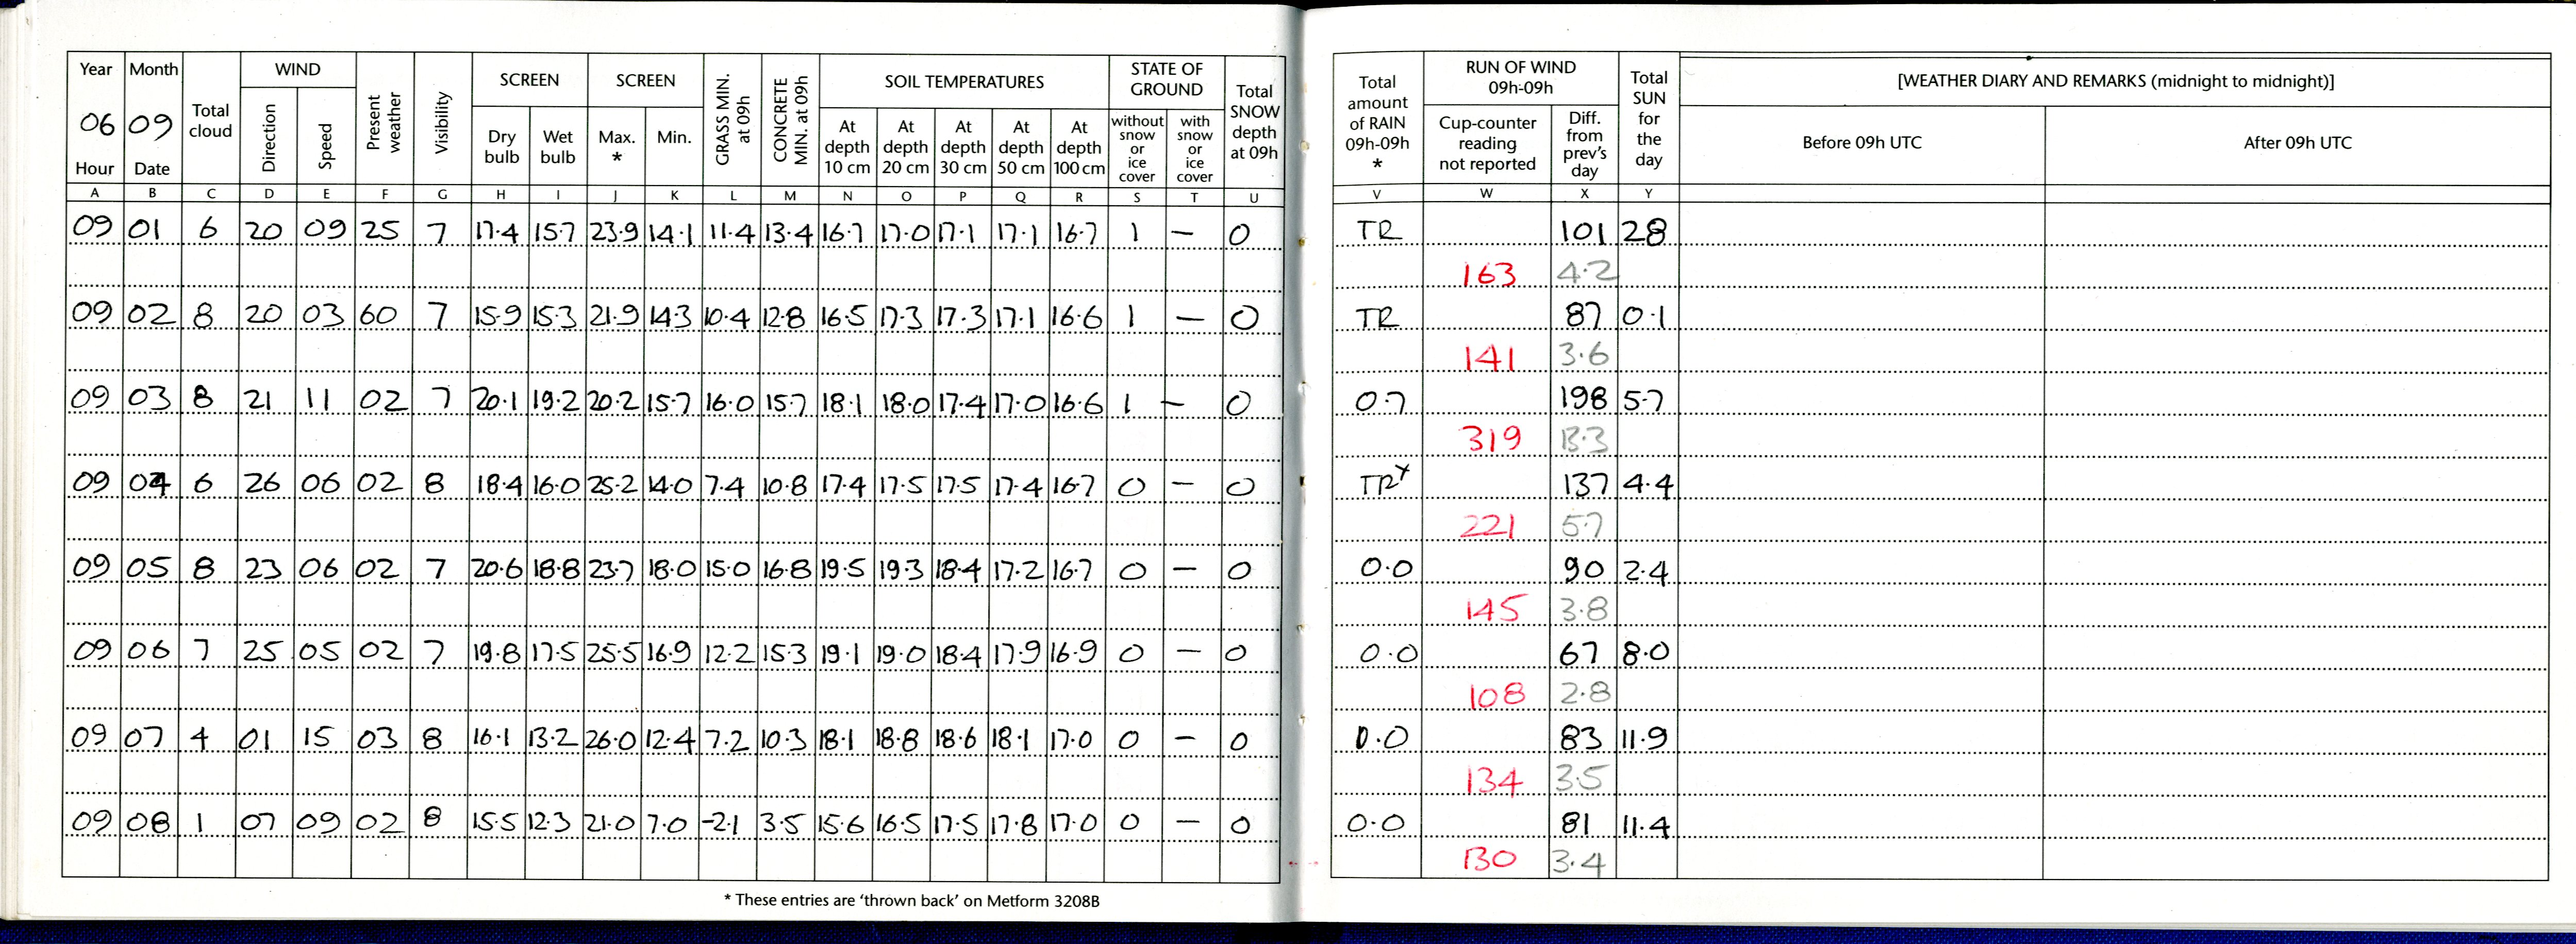 Year Month Total cloud WIND Present weather Visibility SCREEN SCREEN GRASS MIN. at 09h CONCRETE MIN. at 09h SOIL TEMPERATURES STATE OF GROUND Total SNOW depth at 09h Total amount of RAIN 09h-09h * RUN OF WIND 09h-09h Total SUN for the day [WEATHER DIARY AND REMARKS (midnight to midnight)]
06 09 Direction Speed Dry bulb Wet bulb Max. * Min. At depth 10 cm At depth 20 cm At depth 30 cm At depth 50 cm At depth 100 cm without snow or ice cover with snow or ice cover Cup-counter reading not reported Diff. from prev's day Before 09h UTC After 09h UTC
Hour Date
A B C D E F G H I J K L M N O P Q R S T U V W X Y
09 01 6 20 09 25 7 17.4 15.7 23.9 14.1 11.4 13.4 16.7 17.0 17.1 17.1 16.7 1 — 0 TR 101 28
163 4.2
09 02 8 20 03 60 7 15.9 15.3 21.9 14.3 10.4 12.8 16.5 17.3 17.3 17.1 16.6 1 — 0 TR 87 0.1
141 3.6
09 03 8 21 11 02 7 20.1 19.2 20.2 15.7 16.0 15.7 18.1 18.0 17.4 17.0 16.6 1 — 0 0.7 198 5.7
319 13.3
09 04 6 26 06 02 8 18.4 16.0 25.2 14.0 7.4 10.8 17.4 17.5 17.5 17.4 16.7 0 — 0 TR+ 137 4.4
221 5.7
09 05 8 23 06 02 7 20.6 18.8 23.7 18.0 15.0 16.8 19.5 19.3 18.4 17.2 16.7 0 — 0 0.0 90 2.4
145 3.8
09 06 7 25 05 02 7 19.8 17.5 25.5 16.9 12.2 15.3 19.1 19.0 18.4 17.9 16.9 0 — 0 0.0 67 8.0
108 2.8
09 07 4 01 15 03 8 16.1 13.2 26.0 12.4 7.2 10.3 18.1 18.8 18.6 18.1 17.0 0 — 0 0.0 83 11.9
134 3.5
09 08 1 07 09 02 8 15.5 12.3 21.0 7.0 -2.1 3.5 15.6 16.5 17.5 17.8 17.0 0 — 0 0.0 81 11.4
130 3.4
* These entries are ‘thrown back’ on Metform 3208B